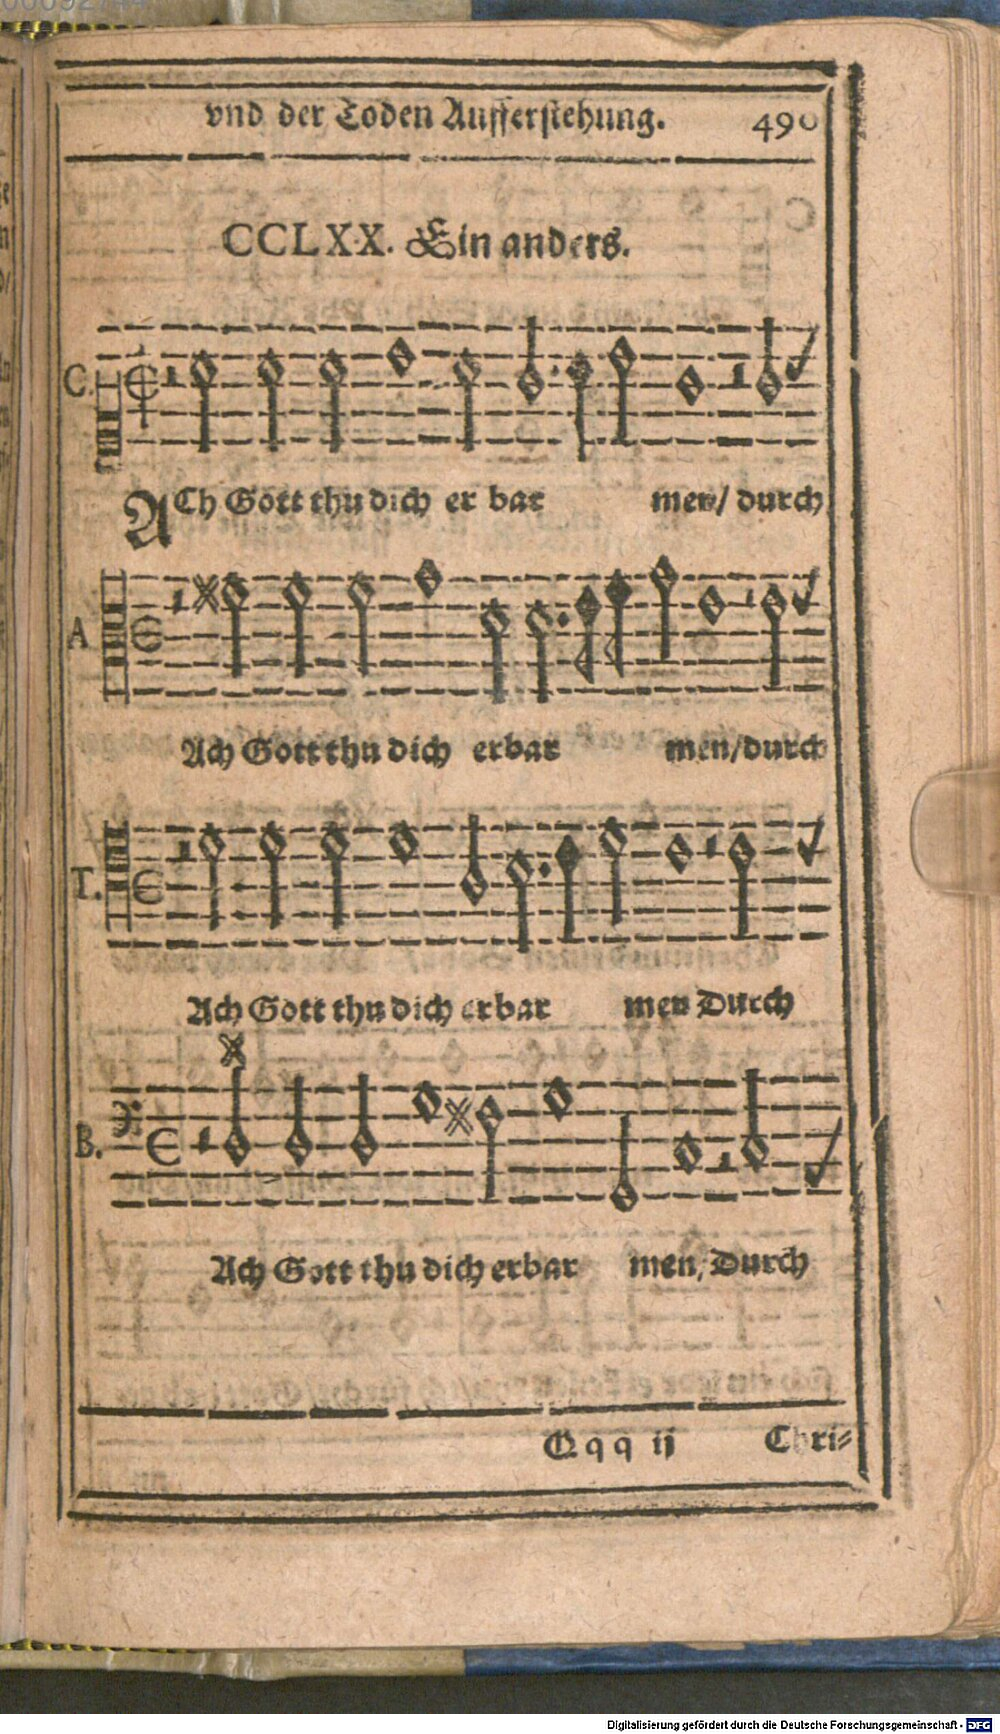 vnd der Toden Aufferstehung. 490
CCLXX. Ein anders.
C.
ACh Gott thu dich er bar men/ durch
A
Ach Gott thu dich erbar men/durch
T.
Ach Gott thu dich erbar men Durch
B.
Ach Gott thu dich erbar men, Durch
Q q q ij Chri⸗
Digitalisierung gefördert durch die Deutsche Forschungsgemeinschaft - DFG